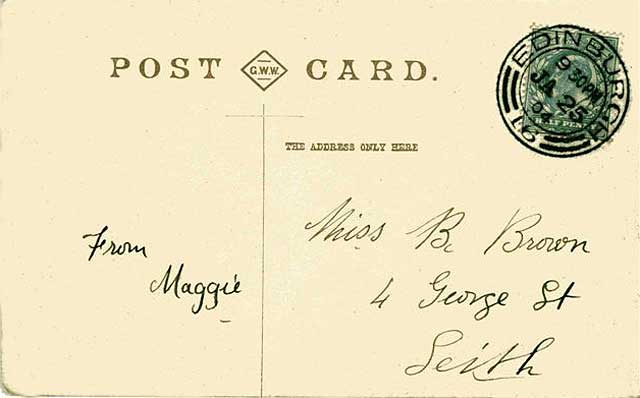 POST G.W.W. CARD.
EDINBURGH
9 30PM
JA 25
04
HALF PENNY
91
THE ADDRESS ONLY HERE
From
Maggie
Miss B. Brown
4 George St
Leith